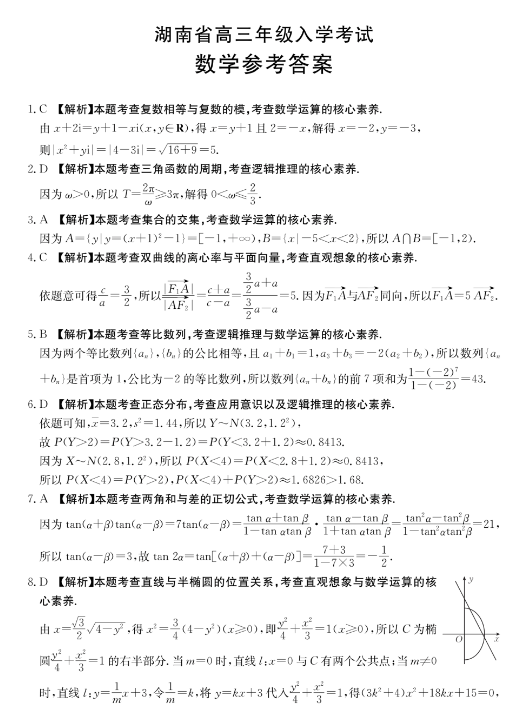 湖南省高三年级入学考试
数学参考答案
1. C 【解析】本题考查复数相等与复数的模,考查数学运算的核心素养.
由 x+2i=y+1-xi(x,y∈R),得 x=y+1 且 2=-x,解得 x=-2,y=-3,
则|x²+yi|=|4-3i|=√(16+9)=5.
2. D 【解析】本题考查三角函数的周期,考查逻辑推理的核心素养.
因为 ω>0,所以 T=2π/ω≥3π,解得 0<ω≤2/3.
3. A 【解析】本题考查集合的交集,考查数学运算的核心素养.
因为 A={y|y=(x+1)²-1}=[-1,+∞),B={x|-5<x<2},所以 A∩B=[-1,2).
4. C 【解析】本题考查双曲线的离心率与平面向量,考查直观想象的核心素养.
依题意可得 c/a=3/2,所以|F₁A|/|AF₂|=(c+a)/(c-a)=(3/2a+a)/(3/2a-a)=5. 因为F₁A与AF₂同向,所以F₁A=5 AF₂.
5. B 【解析】本题考查等比数列,考查逻辑推理与数学运算的核心素养.
因为两个等比数列{aₙ},{bₙ}的公比相等,且 a₁+b₁=1,a₃+b₃=-2(a₂+b₂),所以数列{aₙ
+bₙ}是首项为 1,公比为-2 的等比数列,所以数列{aₙ+bₙ}的前 7 项和为(1-(-2)⁷)/(1-(-2))=43.
6. D 【解析】本题考查正态分布,考查应用意识以及逻辑推理的核心素养.
依题可知,x̄=3.2,s²=1.44,所以 Y~N(3.2,1.2²),
故 P(Y>2)=P(Y>3.2-1.2)=P(Y<3.2+1.2)≈0.8413.
因为 X~N(2.8,1.2²),所以 P(X<4)=P(X<2.8+1.2)≈0.8413,
所以 P(X<4)=P(Y>2),P(X<4)+P(Y>2)≈1.6826>1.68.
7. A 【解析】本题考查两角和与差的正切公式,考查数学运算的核心素养.
因为 tan(α+β)tan(α-β)=7tan(α-β)=(tan α+tan β)/(1-tan αtan β)·(tan α-tan β)/(1+tan αtan β)=(tan²α-tan²β)/(1-tan²αtan²β)=21,
所以 tan(α-β)=3,故 tan 2α=tan[(α+β)+(α-β)]=(7+3)/(1-7×3)=-1/2.
8. D 【解析】本题考查直线与半椭圆的位置关系,考查直观想象与数学运算的核
心素养.
由 x=√3/2 √(4-y²),得 x²=3/4(4-y²)(x≥0),即 y²/4+x²/3=1(x≥0),所以 C 为椭
圆 y²/4+x²/3=1 的右半部分. 当 m=0 时,直线 l:x=0 与 C 有两个公共点;当 m≠0
时,直线 l:y=1/m x+3,令 1/m=k,将 y=kx+3 代入 y²/4+x²/3=1,得(3k²+4)x²+18kx+15=0,
y
O
x